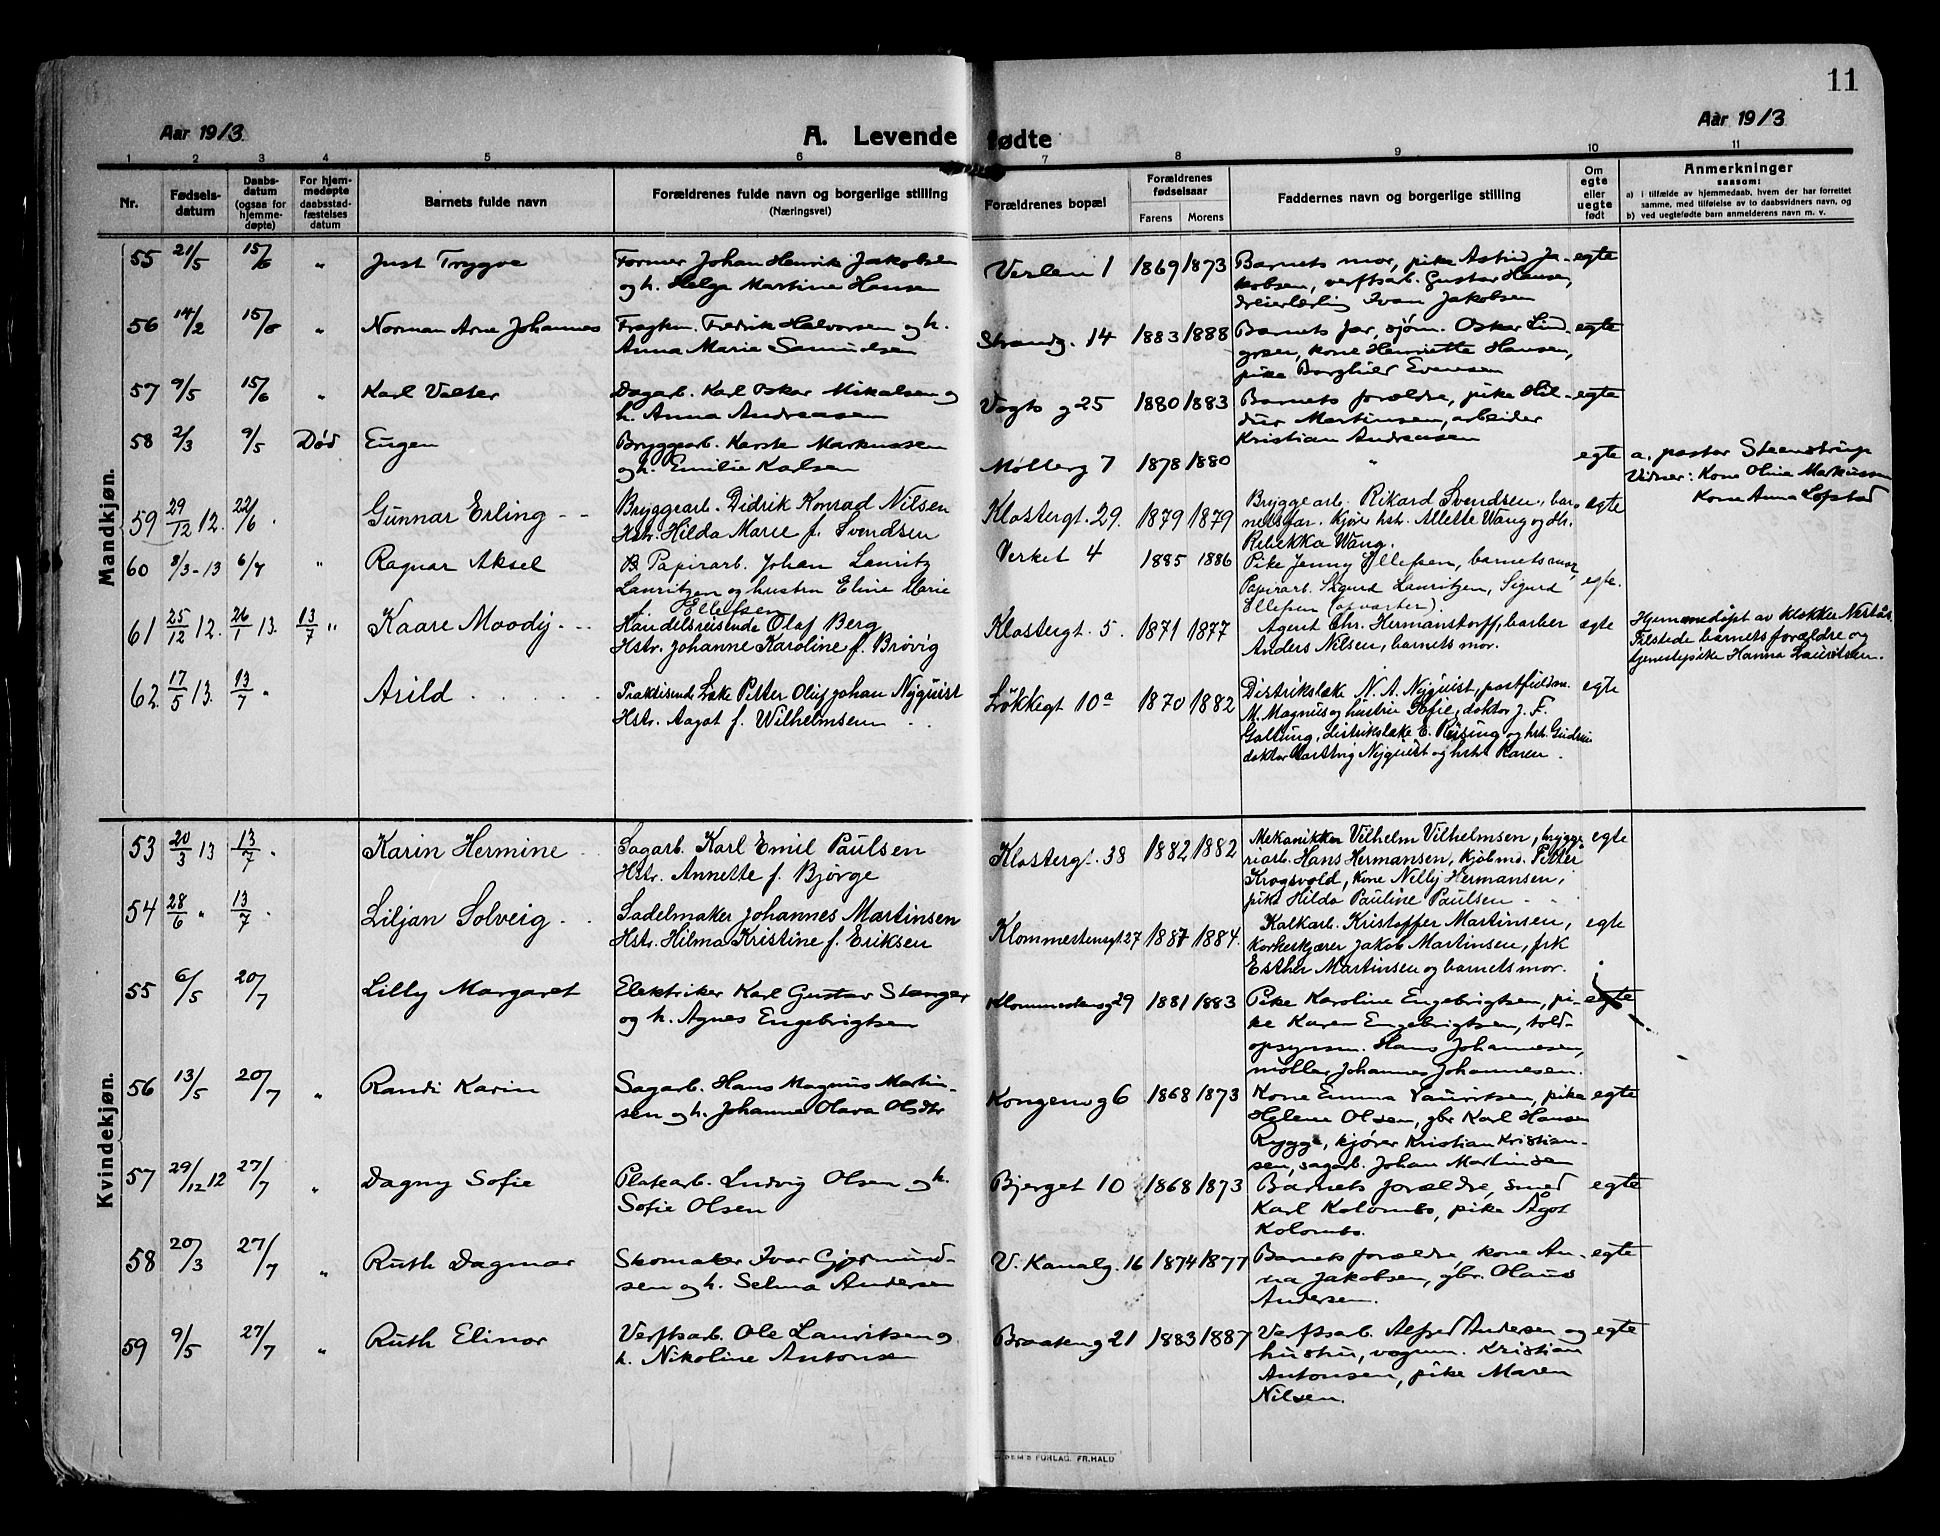 11
Aar 1913.
A. Levende fødte
Aar 1913
1 2 3 4 5 6 7 8 9 10 11
Nr.
Fødsels-
datum
Daabs-
datum
(ogsaa for
hjemme-
døpte)
For hjem-
medøpte
daabsstad-
fæstelses
datum
Barnets fulde navn
Forældrenes fulde navn og borgerlige stilling
(Næringsvei)
Forældrenes bopæl
Forældrenes
fødselsaar
Farens Morens
Faddernes navn og borgerlige stilling
Om
egte
eller
uegte
født
Anmerkninger
saasom:
a) i tilfælde av hjemmedaab, hvem der har forrettet
samme, med tilføielse av to daabsvidners navn, og
b) ved uegtefødte barn anmelderens navn m. v.
Mandkjøn.
55 21/5 15/6 " Just Trygve
Former Johan Henrik Jakobsen
og h. Helga Martine Hansen
Verlen 1 1869 1873
Barnets mor, pike Astrid Ja-
kobsen, verftsarb. Gustav Hansen,
dreierlærling Ivan Jakobsen
egte
56 14/2 15/6 " Norman Arne Johannes
Fragtm. Fredrik Halvorsen og h.
Anna Marie Samuelsen
Strandg. 14 1883 1888
Barnets far, sjøm. Oskar Lind-
gren, kone Henriette Hansen,
pike Borghild Evensen
egte
57 9/5 15/6 " Karl Valter
Dagarb. Karl Oskar Mikalsen og
h. Anna Andreasen
Vogts g 25 1880 1883
Barnets forældre, pike Hil-
dur Martinsen, arbeider
Kristian Andreasen
egte
58 2/3 9/5 Død Eugen
Bryggearb. Karste Markussen
og h. Emilie Karlsen
Møllerg 7 1878 1880 "
egte
a. pastor Steenstrup
Vidner: Kone Oline Markussen
Kone Anna Lofstad
59 29/12 12. 22/6 . Gunnar Erling
Bryggearb. Didrik Konrad Nilsen
Hstr. Hilda Marie f. Svendsen
Klostergt. 29. 1879 1879
Bryggearb. Rikard Svendsen, bar-
nets far. Kjører hstr. Allette Wang og fr.
Rebekka Wang.
egte
60 8/3-13 6/7 " Ragnar Aksel
Papirarb. Johan Lauritz
Lauritzen og hustru Eline Marie
f. Ellefsen
Verket 4 1885 1886
Pike Jenny Ellefsen, barnets mor,
Papirarb. Sigurd Lauritzen, Sigurd
Ellefsen (opvarter).
egte.
61 25/12 12. 26/1 13. 13/7 " Kaare Moodij
Handelsreisende Olaf Berg
Hstr. Johanne Karoline f. Brøvig
Klostergt. 5. 1871 1877
Agent Chr. Hermanstorff, barber
Anders Nilsen, barnets mor.
egte
Hjemmedøpt av klokker
Tilstede barnets forældre og
tjenestepike Hanna Lauritsen.
62. 17/5 13. 13/7 . Arild
Praktiserende Læke Petter Oluf Johan Nyquist
Hstr. Aagot f. Wilhelmsen
Løkkegt 10a 1870 1882
Distrikslæke N. A. Nyquist, postfuldm.
M. Magnus og hustru Sofie, doktor J. F.
Galtung, distrikslæke E. Reising og hstr. Gudrun
doktor Hartvig Nyquist og hstr Karen.
egte
Kvindekjøn.
53 20/3 13 13/7 . Karin Hermine
Sagarb. Karl Emil Paulsen
Hstr. Annette f. Bjørge
Klostergt. 38 1882 1882
Mekanikker Vilhelm Vilhelmsen, brygg-
eriarb. Hans Hermansen, Kjøbmd. Petter
Krogsvold, kone Nelly Hermansen,
pike Hilda Pauline Paulsen
egte
54 28/6 " 13/7 . Liljan Solveig
Sadelmaker Johannes Martinsen
Hstr. Hilma Kristine f. Eriksen
Klommestensgt 27 1887 1884.
Kalkarb. Kristoffer Martinsen,
korkeskjærer Jakob Martinsen, frk
Esther Martinsen og barnets mor.
egte
55 6/5 20/7 Lilly Margaret
Elektriker Karl Gustav Stenger
og h. Agnes Engebrigtsen
Klommestensg 29 1881 1883
Pike Karoline Engebrigtsen, pi-
ke Karen Engebrigtsen, told-
opsynsm. Hans Johannesen,
møller Johannes Johannesen.
egte
56 13/5 20/7 " Randi Karin
Sagarb. Hans Magnus Martin-
sen og h. Johanne Olava Olsdtr
Kongensg 6 1868 1873
Kone Emma Lauritsen, pike
Helene Olsen, gbr Karl Hansen
Rygge, kjører Kristian Kristian-
sen, sagarb. Johan Martinsen
egte
57 29/12 12 27/7 " Dagny Sofie
Platearb. Ludvig Olsen og h.
Sofie Olsen
Bjerget 10 1868 1873
Barnets forældre, smed
Karl Kolombs, pike Ågot
Kolombs.
egte
58 20/3 27/7 " Ruth Dagmar
Skomaker Ivar Gjermund-
sen og h. Selma Andersen
V. Kanalg. 16 1874 1877
Barnets forældre, kone An-
na Jakobsen, gbr. Olaus
Andersen.
egte
59 9/5 27/7 " Ruth Elinor
Verftsarb. Ole Lauritsen og
h. Nikoline Antonsen
Braateng 21 1883 1887
Verftsarb. Alfred Andersen og
hustru, vognm. Kristian
Antonsen, pike Maren
Nilsen.
egte
FORLAG. FR. HALD